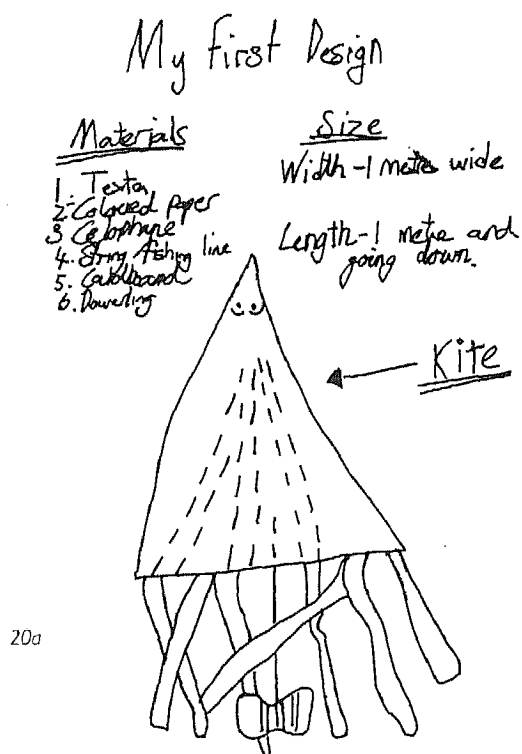 My first Design
Materials
1. Texta
2. Coloured paper
3 Celophane
4. String fishing line
5. Cardboard
6. Dowerling
Size
Width - 1 metre wide
Length - 1 metre and
going down.
Kite
20a